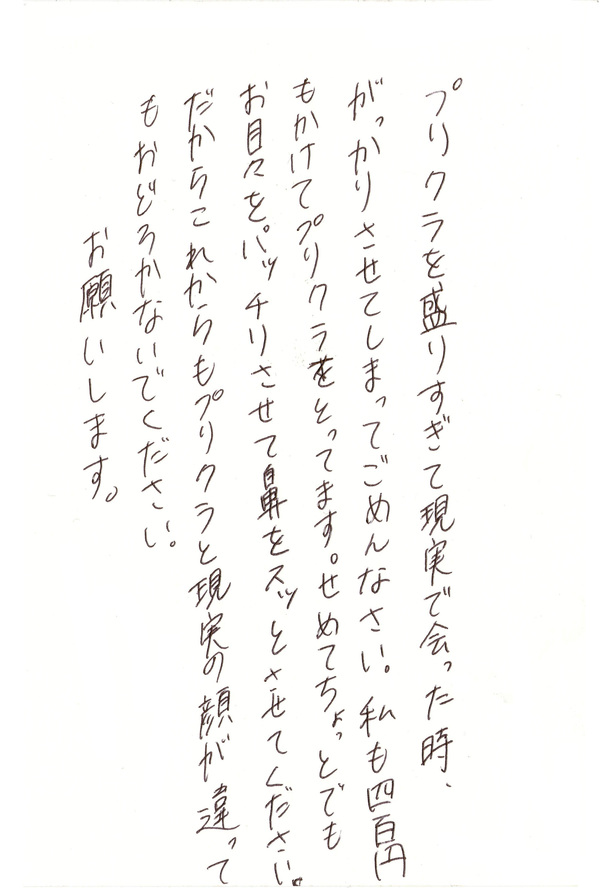 プリクラを盛りすぎて現実で会った時、
がっかりさせてしまってごめんなさい。私も四百円
もかけてプリクラをとってます。せめてちょっとでも
お目々をパッチリさせて鼻をスッとさせてください。
だからこれからもプリクラと現実の顔が違って
もおどろかないでください。
お願いします。